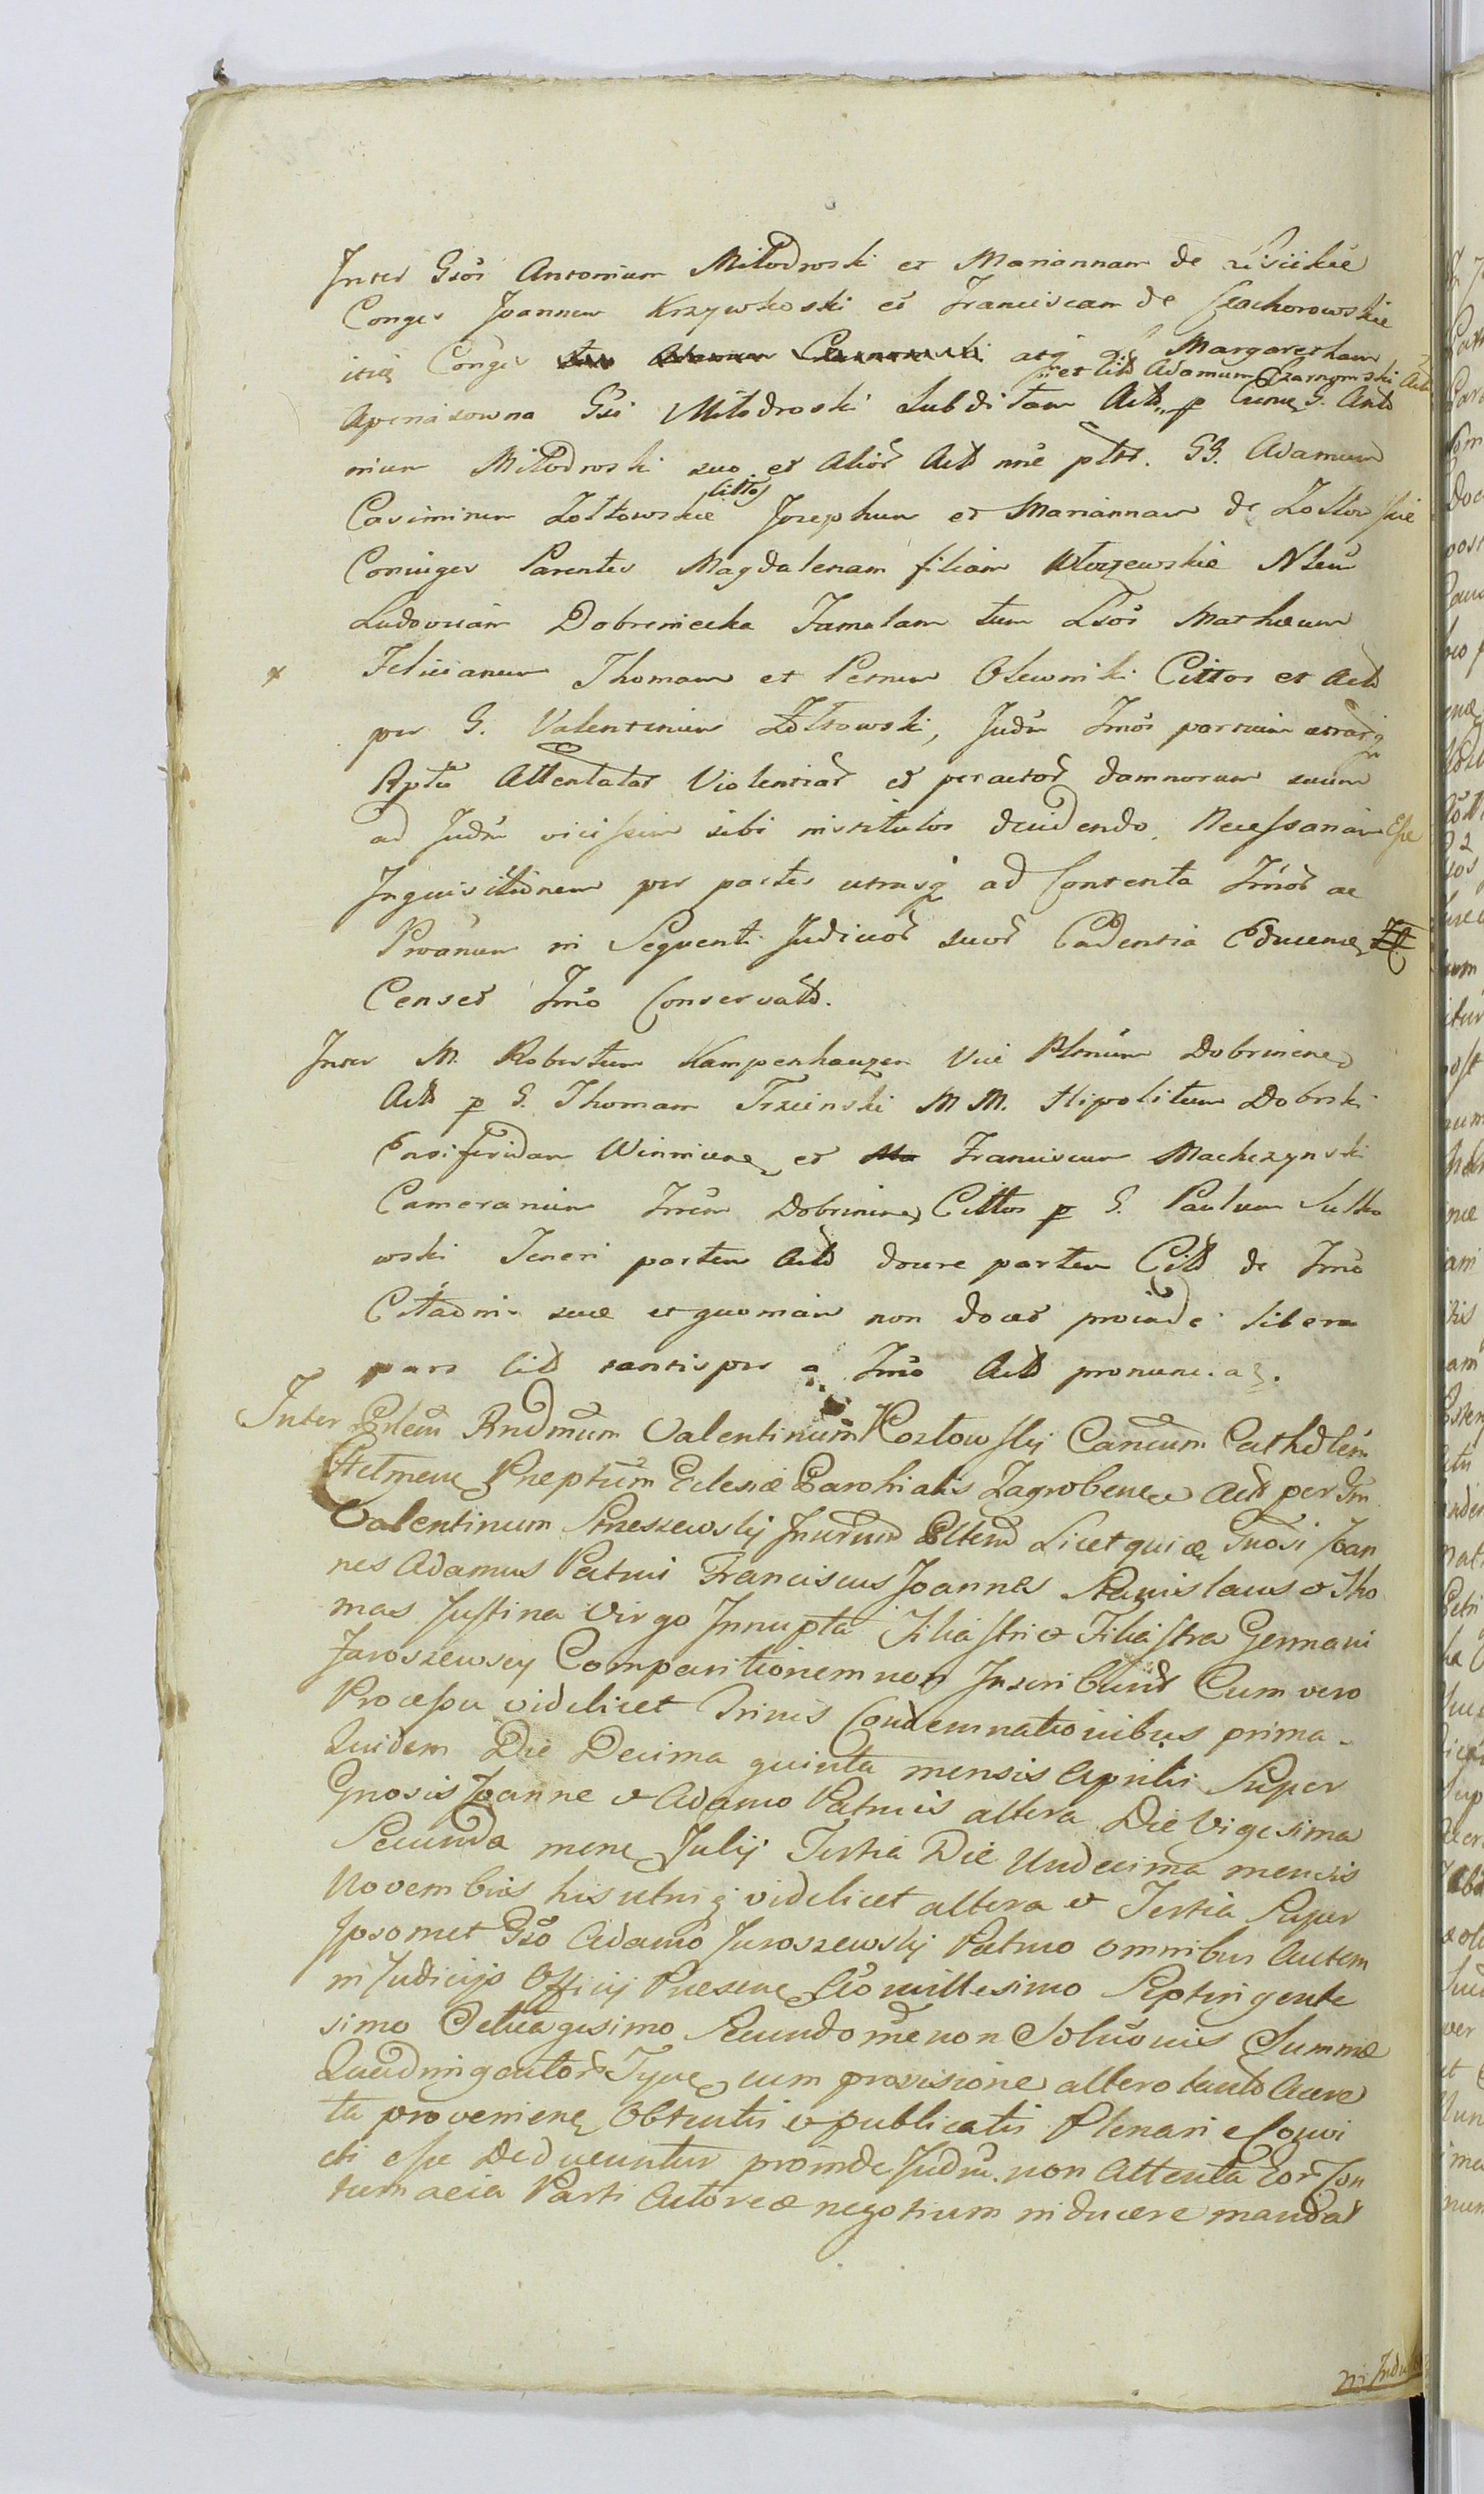 Inter Gsos Antonium Miłodroski et Mariannam de
Conges Joannem Krzywkoski et Franciscam de Czachorowskie
itiq Conges atq Margaretham
et Citt Adamum Czarnomski Act
Apenasowna Gsi Miłodroski Subditam Act p eundq G. Anto
nium Miłodroski suo et alior Act nne pltr. GG. Adamum
Cittos
Casimirum Zołtowskie Josephum et Mariannam de Zołtowskie
Coniuges Parentes Magdalenam filiam Włoczewskie Nlem
Ludovicam Dobrzniecka Famulam tum Lsos Matheum
x Felicianum Thomam et Petrum Olewniki Cittos et Act
per G. Valentinum Zołtowski, Judm Imos partium
Rptu Attentatar Violentiar et peractor damnorum suum
ad Judm vicissim sibi institutos decidendo, Necessariam Esse
Inquisitionem per partes utrasq ad Contenta Imor ac
Proanum in Sequenti Judicior suor Cadentia Educend
Censet Imo Conservato.
Inter M. Robertum Kampenhauzen Vice Plenum Dobrinenę
Act p G. Thomam Trzcinski M M. Hipolitum Dobrski
Ensiferidam Winnicenę et Franciscum Machczynski
Camerarium Trrem Dobrinenę Cittos p G. Paulum Sulko
wski Teneri partem Act docere partem Citt de Imo
Citaonis suae et quoniam non docet proinde libera
pars Citt tantisper a Imo Act pronunciaz.
Inter Perlem Rndmum Valentinum Kozłowskij Canicum Cathdlem
Chelmenę Preptum Eclesiæ Parohialis Zagrobenæ Act per Gm
Valentinum Strzeszewskij Inurum Licet quiæ Gnosi Joan
nes Adamus Patrui Franciscus Joannes Stanislaus & Tho
mas Justina Virgo Innupta Filiastri & Filiastra Germani
Jaroszewscy Comparitionem non Inscribunt Cum vero
Processu videlicet Trinis Condemnationibus prima
Quidem Die Decima quinta mensis Aprilis Super
Gnosis Joanne & Adamo Patruis altera Die Vigesima
Secunda menę Julij Tertia Die Undecima mensis
Novembris his utriq videlicet altera & Tertia Super
Ipsomet Gso Adamo Jaroszewskij Patruo omnibus Autem
in Judicijs Officij Presenę Ao millesimo Septingente
simo Octuagesimo Secundo rne non Soluonis Summæ
Quadringentor Tynę cum provisione altero tanto Acere
ta provenienę Obtentis & publicatis Plenarie Convi
cti esse Deducuntur proinde Judm non Attenta Eor Con
tumacia Parti Actoreæ negotium inducere mandat
in Judu